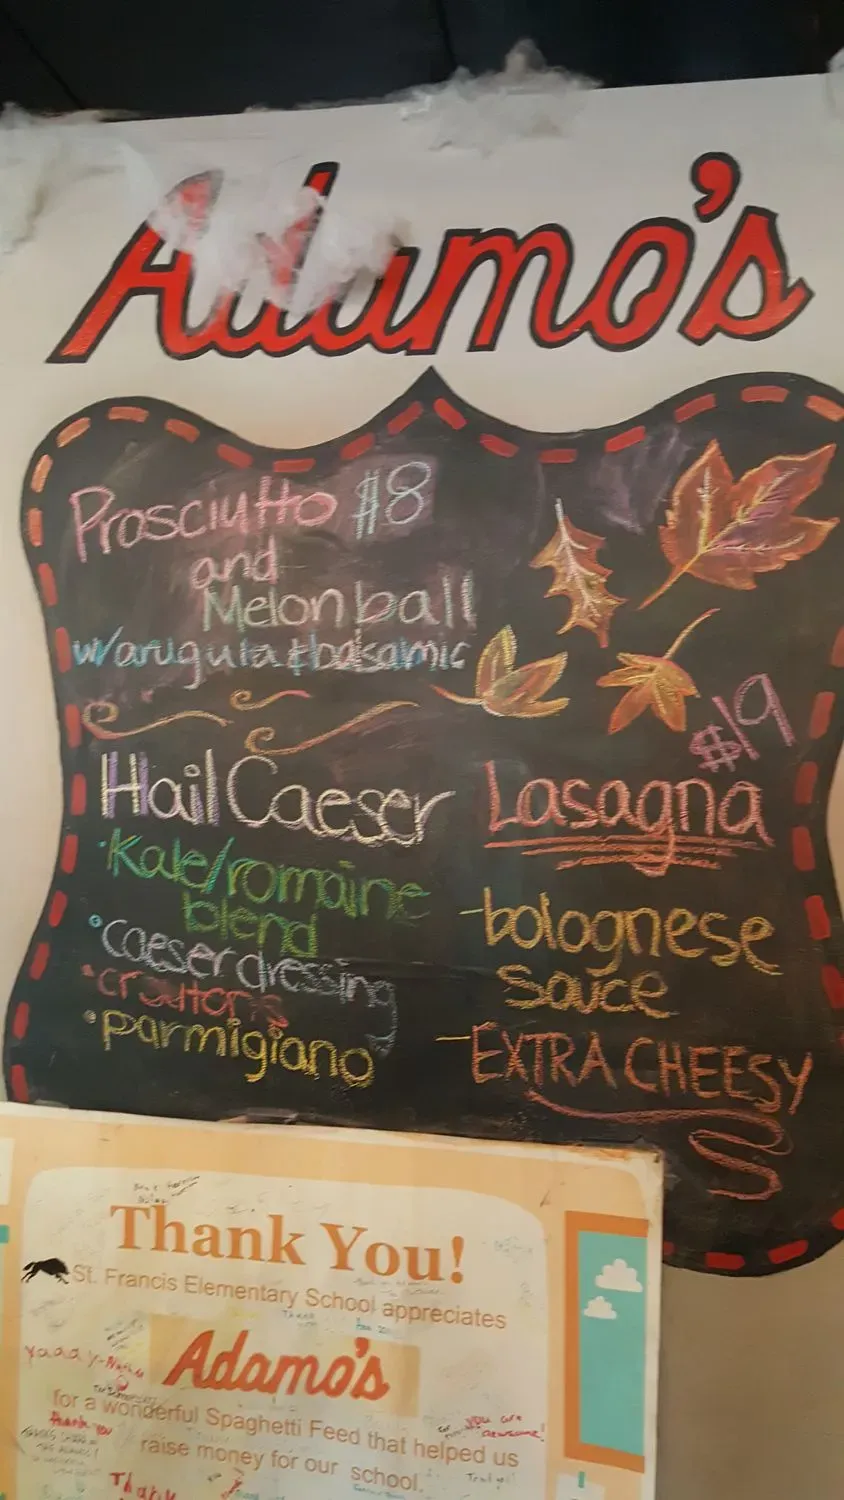 Adamo's
Prosciutto $8
and
Melon ball
w/arugula & balsamic
Hail Caeser
•Kale/romaine
blend
•caeser dressing
•croutons
•parmigiano
$19
Lasagna
-bolognese
sauce
-EXTRA CHEESY
Thank You!
St. Francis Elementary School appreciates
Adamo's
for a wonderful Spaghetti Feed that helped us
raise money for our school.
yaaay-
Thank you
you are
awesome!
Thank